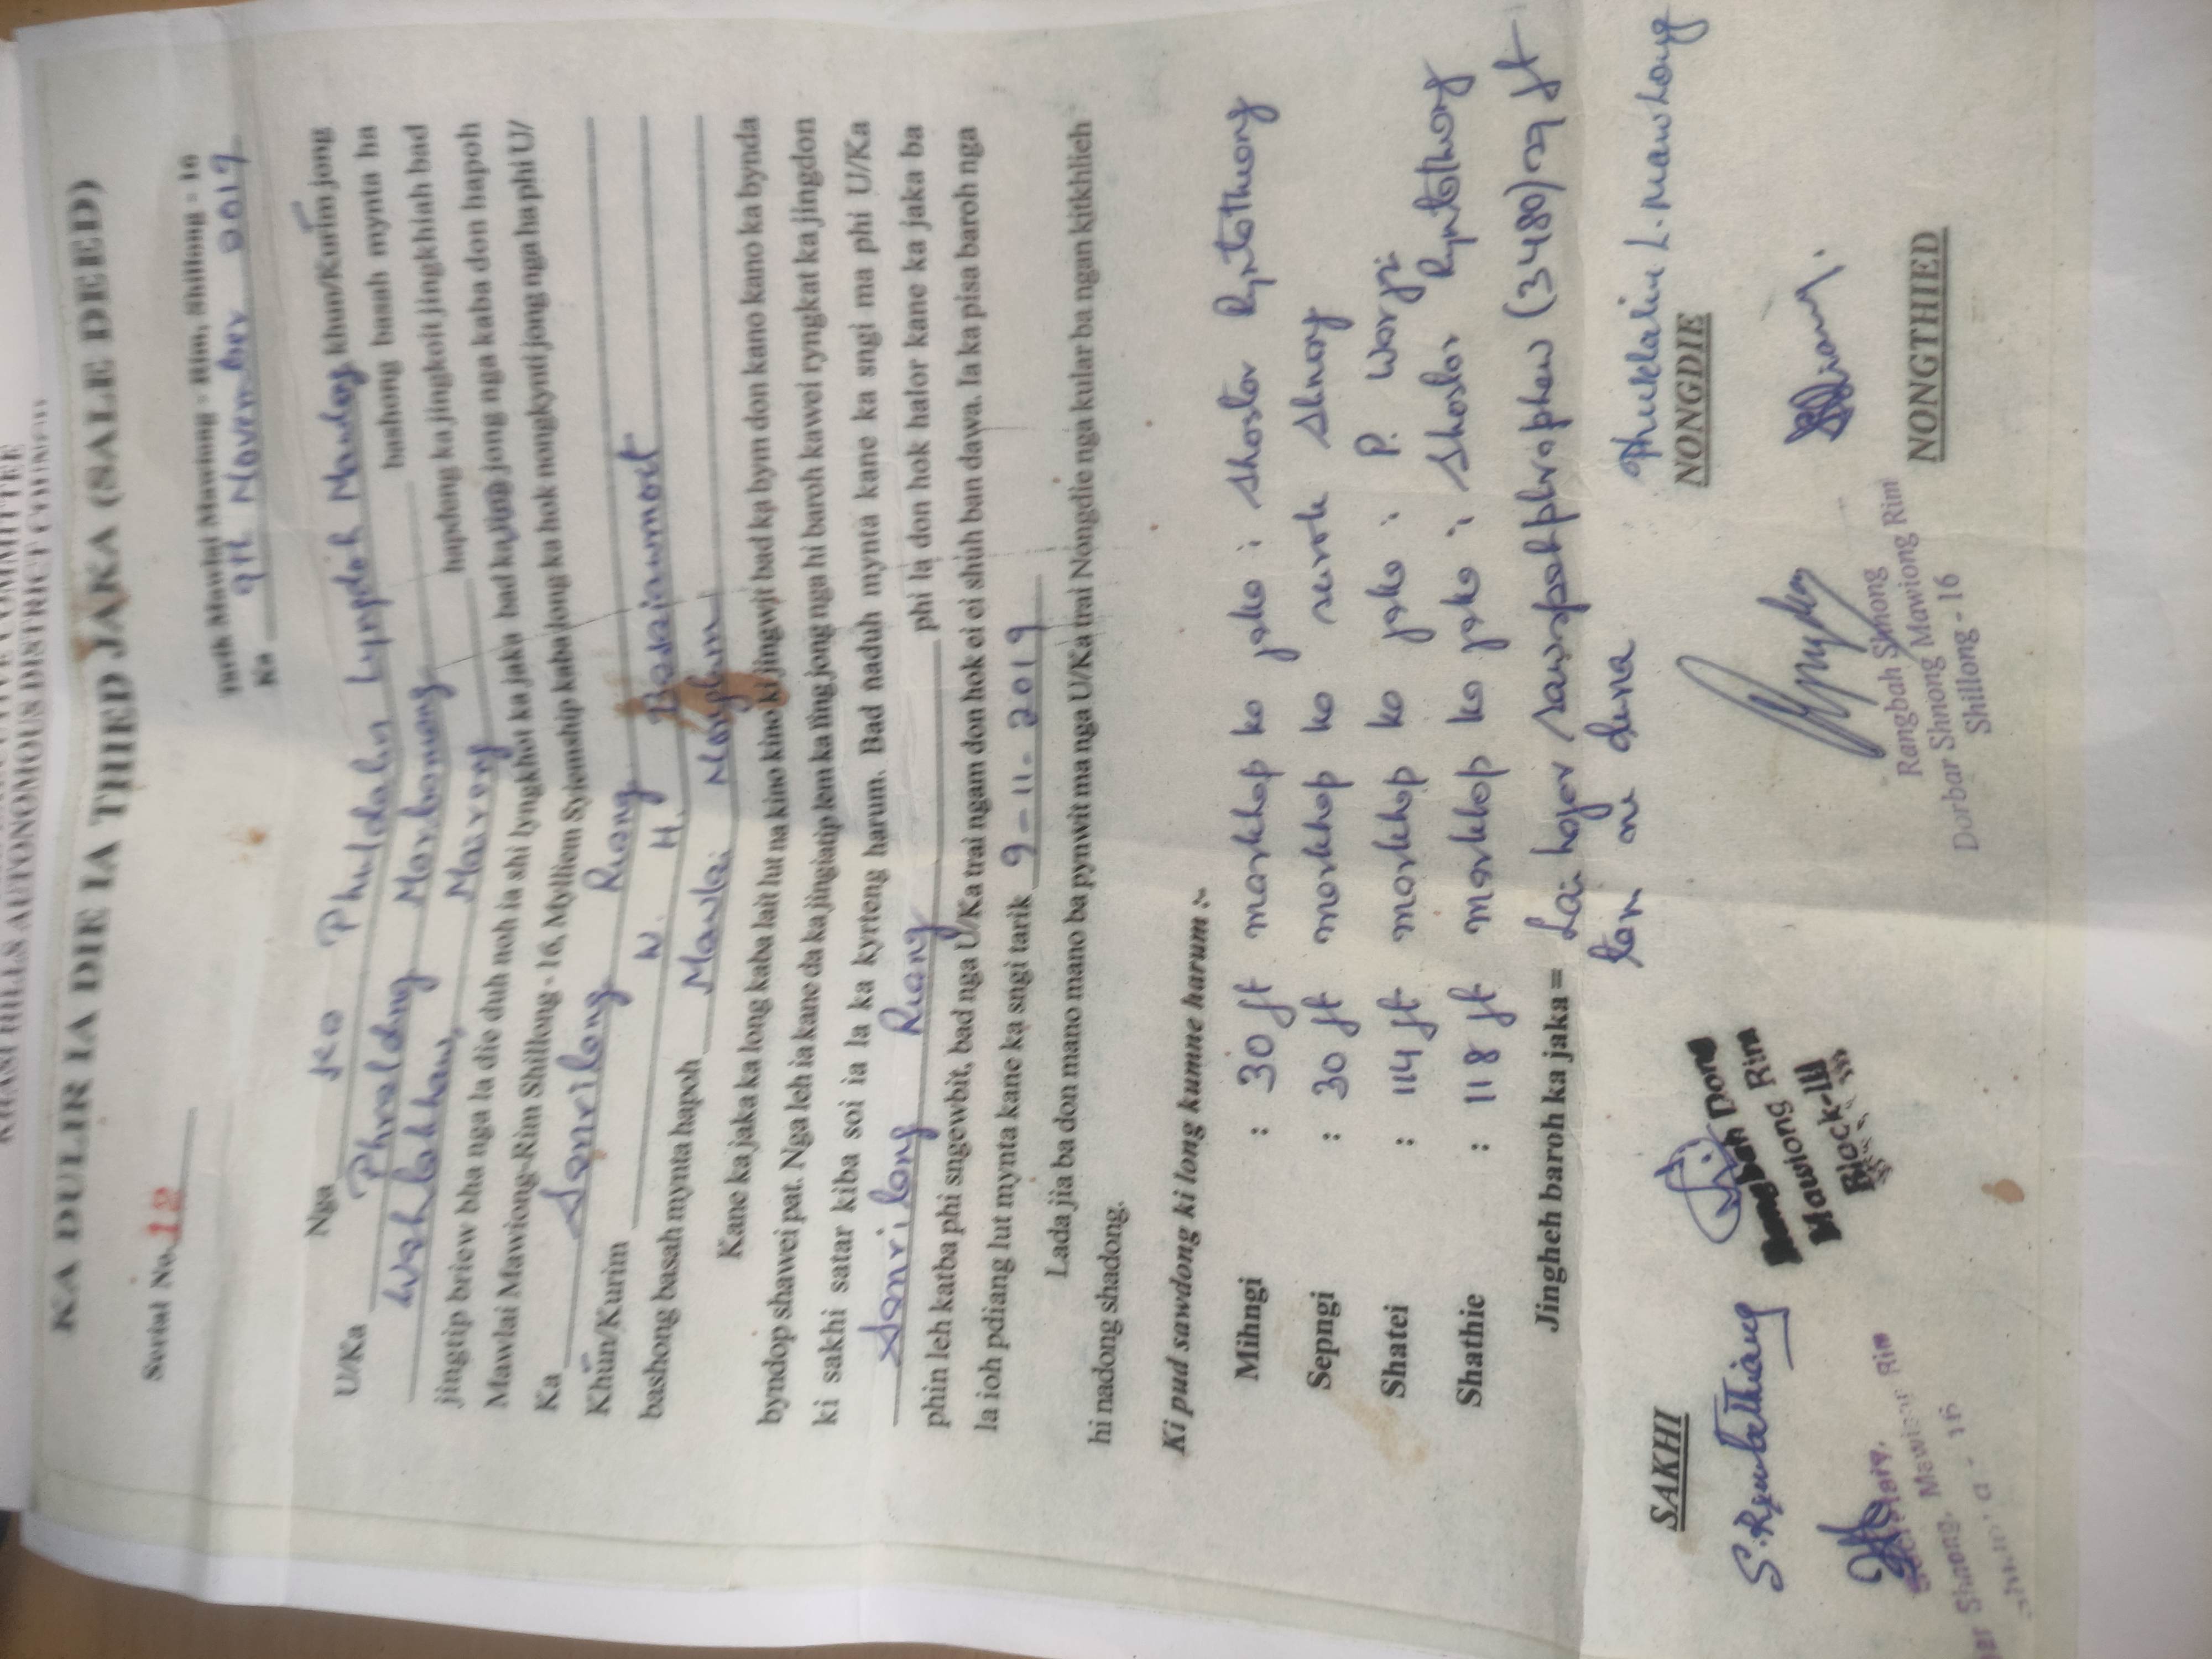 KHASI HILLS AUTONOMOUS DISTRICT COUNCIL
KA DULIR IA DIE IA THIED JAKA (SALE DEED)
Serial No. 12
Tarik Mawlai Mawiong - Rim, Shillong - 16
Ka 9th November 2019
Nga Ka Phuldalin Lyngdoh Mawlong khun/Kurim jong
U/Ka Phralding Marbaniang bashong basah mynta ha
Wahlakhaw, Mairang hapdeng ka jingkoit jingkhiah bad
jingtip briew bha nga la die duh noh ia shi lyngkhot ka jaka bad ka jong nga kaba don hapoh
Mawlai Mawiong-Rim Shillong - 16, Mylliem Syiemship kaba long ka hok nongkynti jong nga ha phi U/
Ka Sanrilang Riang
Khun/Kurim W. H. Basaiawmoit
bashong basah mynta hapoh Mawlai Nongkam
Kane ka jaka ka long kaba lait lut na kino kino ki jingwjit bad ka bym don kano kano ka bynda
byndop shawei pat. Nga leh ia kane da ka jingiatip lem ka iing jong nga hi baroh kawei ryngkat ka jingdon
ki sakhi satar kiba soi ia la ka kyrteng harum. Bad naduh mynta kane ka sngi ma phi U/Ka
Sanrilang Riang phi la don hok halor kane ka jaka ba
phin leh katba phi sngewbit, bad nga U/Ka trai ngam don hok ei ei shuh ban dawa. Ia ka pisa baroh nga
la ioh pdiang lut mynta kane ka sngi tarik 9-11-2019
Lada jia ba don mano mano ba pynwit ma nga U/Ka trai Nongdie nga kular ba ngan kitkhlieh
hi nadong shadong.
Ki pud sawdong ki long kumne harum :-
Mihngi : 30 ft markhap ka jaka : Shostar Ryntathiang
Sepngi : 30 ft markhap ka surok shnong
Shatei : 114 ft markhap ka jaka : P. Warjri
Shathie : 118 ft markhap ka jaka : Shostar Ryntathiang
Jingheh baroh ka jaka = Lai hajar sawspahphraphew (3480) sq ft
NONGDIE
Phuldalin L. Mawlong
SAKHI
Rangbah Dong
Mawiong Rim
Block-III
Rangbah Shnong
Dorbar Shnong Mawiong Rim
Shillong - 16
NONGTHIED
Secretary,
Shnong, Mawiong Rim